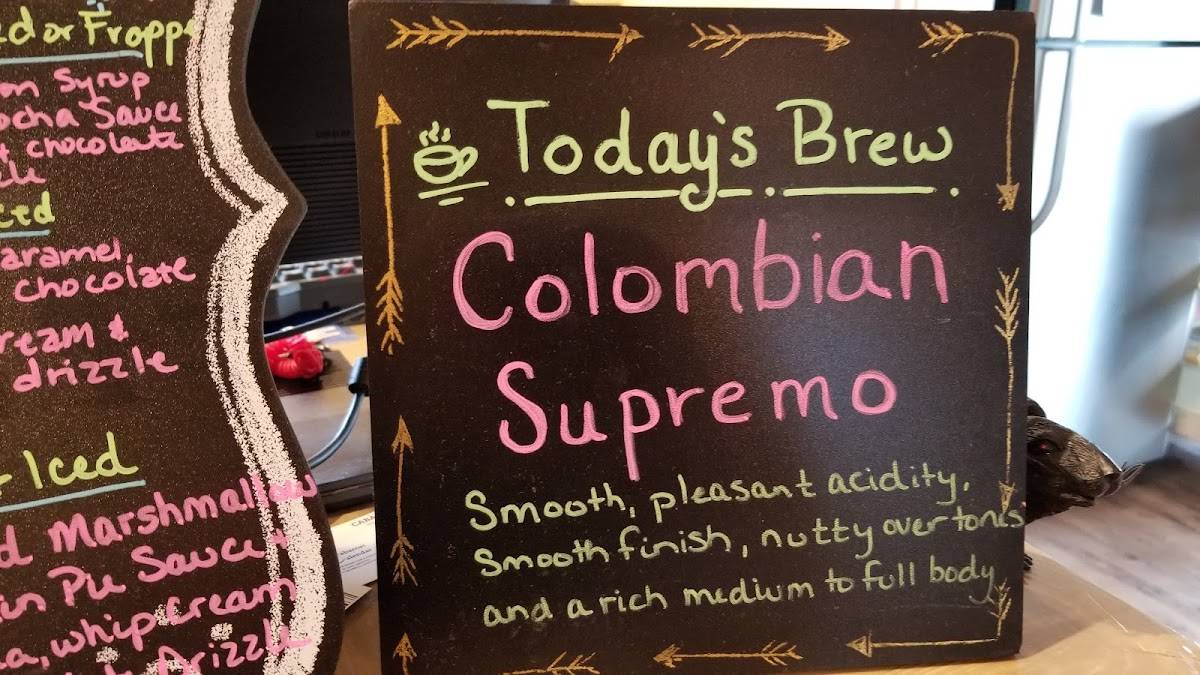 Froppe
Syrup
Sauce
chocolate
Caramel,
chocolate
drizzle
Iced
Marshmallow
Sauce+
whip cream
Drizzle
Today's Brew
Colombian
Supremo
Smooth, pleasant acidity,
Smooth finish, nutty overtones
and a rich medium to full body